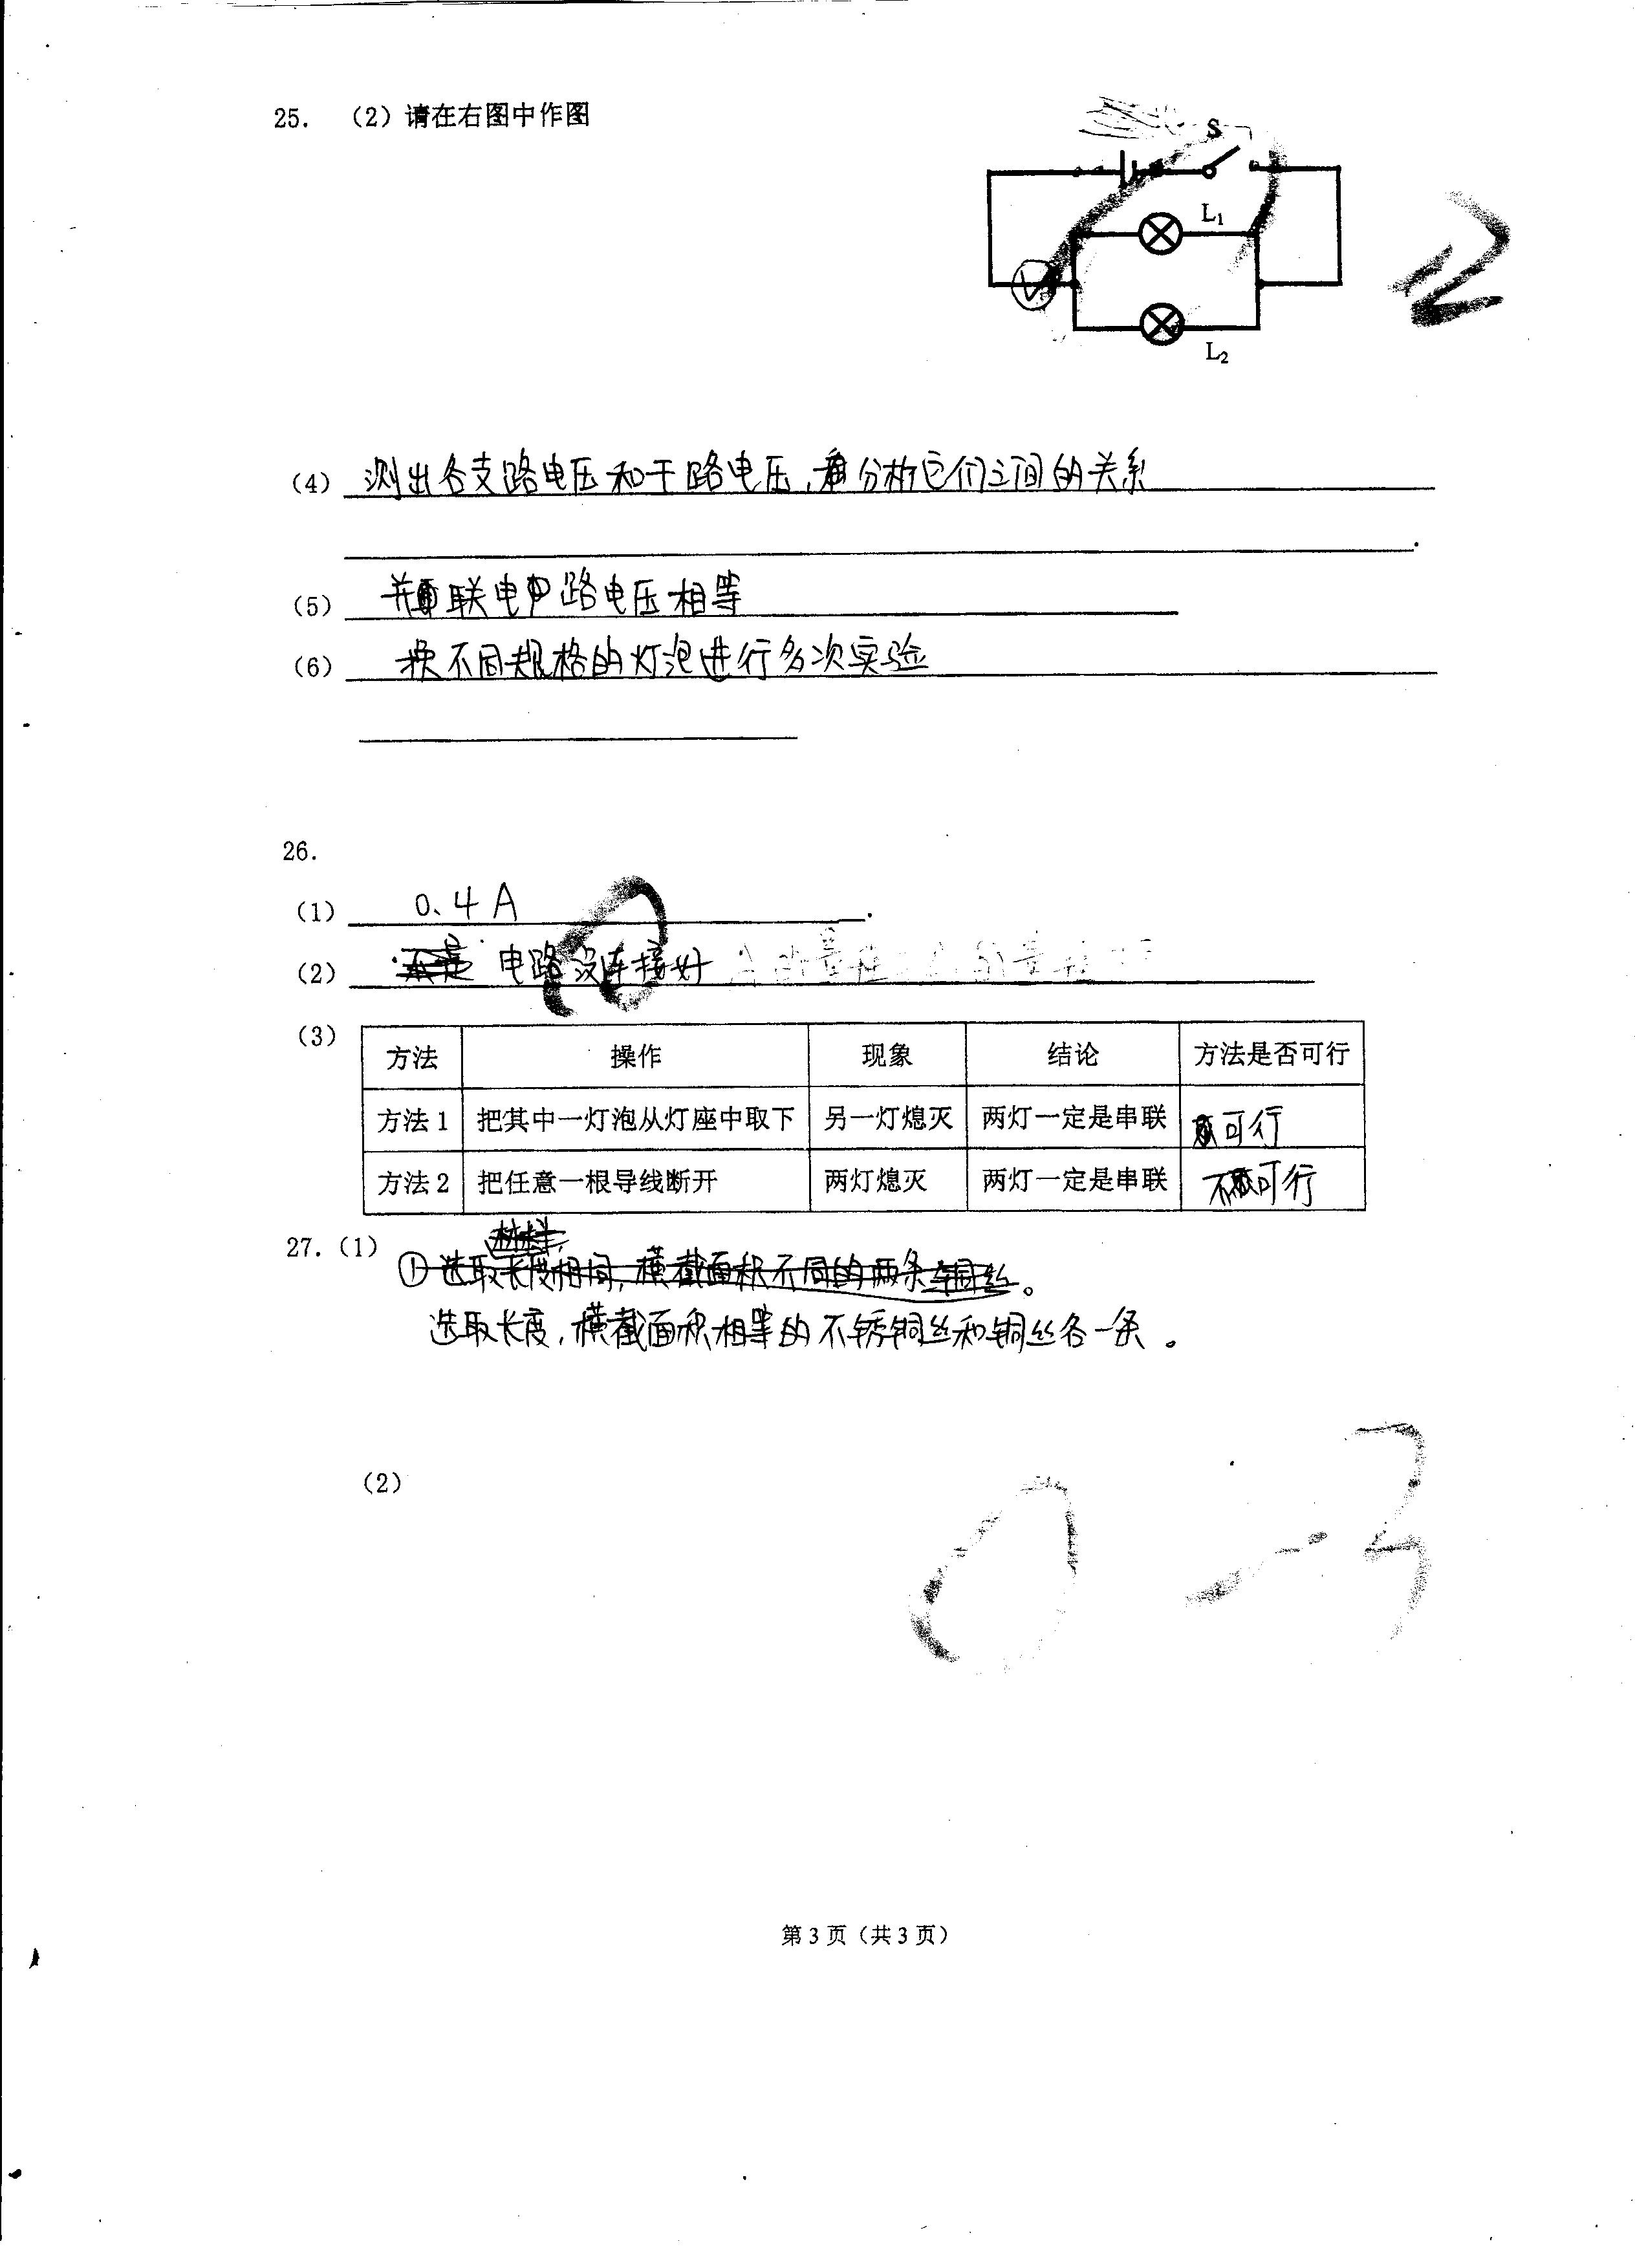 25. （2）请在右图中作图
S
L₁
V
L₂
(4) 测出各支路电压和干路电压，分析它们之间的关系
(5) 并联电路电压相等
(6) 换不同规格的灯泡进行多次实验
26.
(1) 0.4A
(2) 电路没连接好
(3)
方法 操作 现象 结论 方法是否可行
方法1 把其中一灯泡从灯座中取下 另一灯熄灭 两灯一定是串联 可行
方法2 把任意一根导线断开 两灯熄灭 两灯一定是串联 不可行
27.(1) ①选取长度相同，横截面积不同的两条铜丝。
选取长度，横截面积相等的不锈钢丝和铜丝各一条。
(2)
0 -3
第3页（共3页）